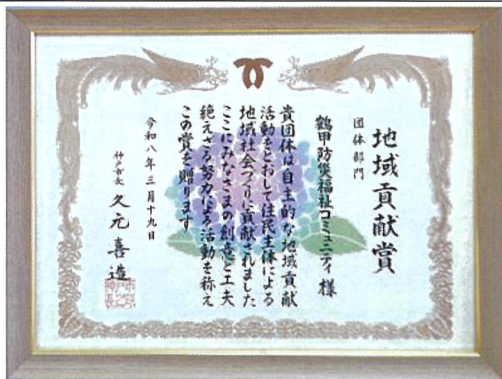 地域貢献賞
団体部門
鶴甲防災福祉コミュニティ 様
貴団体は自主的な地域貢献
活動をとおして住民主体による
地域社会づくりに貢献されました
ここにみなさまの創意と工夫
絶えざる努力による活動を称え
この賞を贈ります
令和八年三月十九日
神戸市長 久元喜造